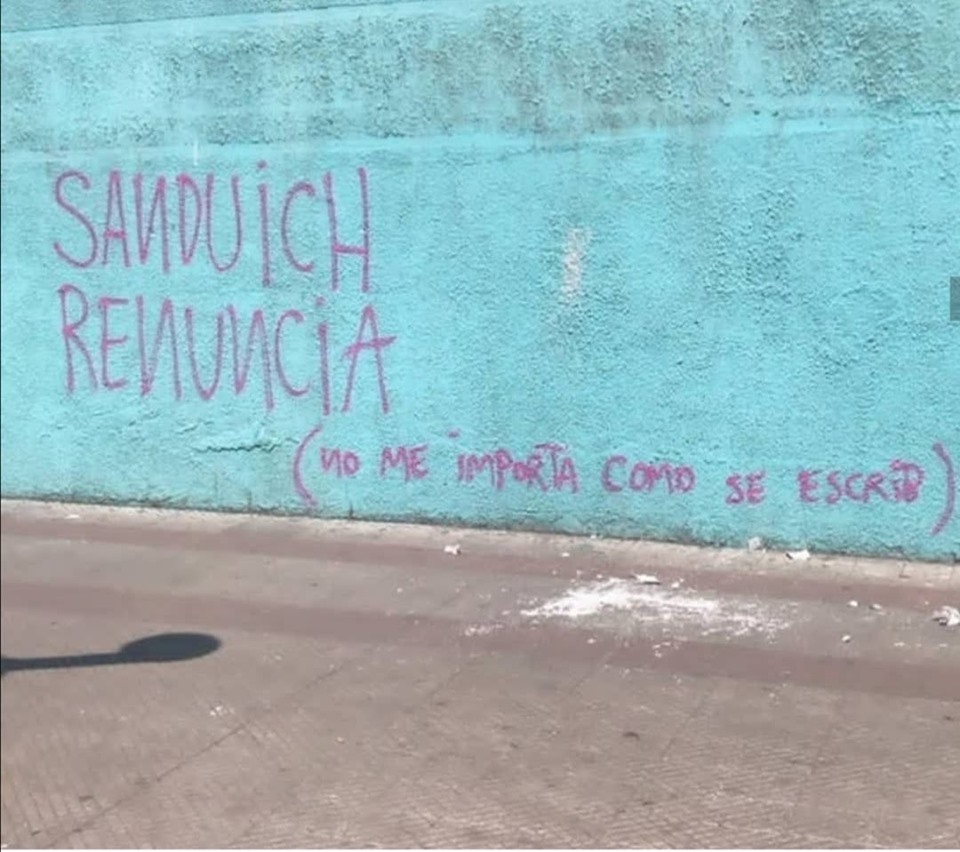 SANDUiCH
RENUNCiA
(NO ME iMPORTA COMO SE ESCRiB)